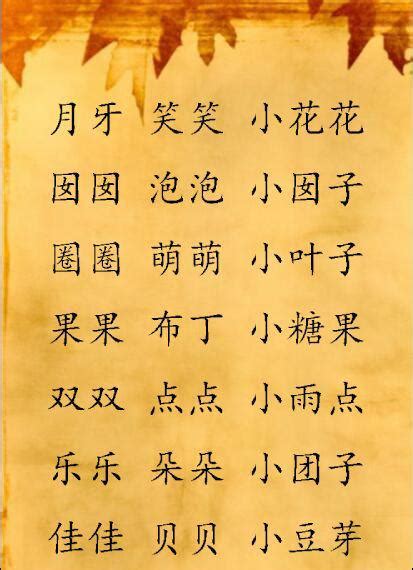 月牙 笑笑 小花花
囡囡 泡泡 小囡子
圈圈 萌萌 小叶子
果果 布丁 小糖果
双双 点点 小雨点
乐乐 朵朵 小团子
佳佳 贝贝 小豆芽